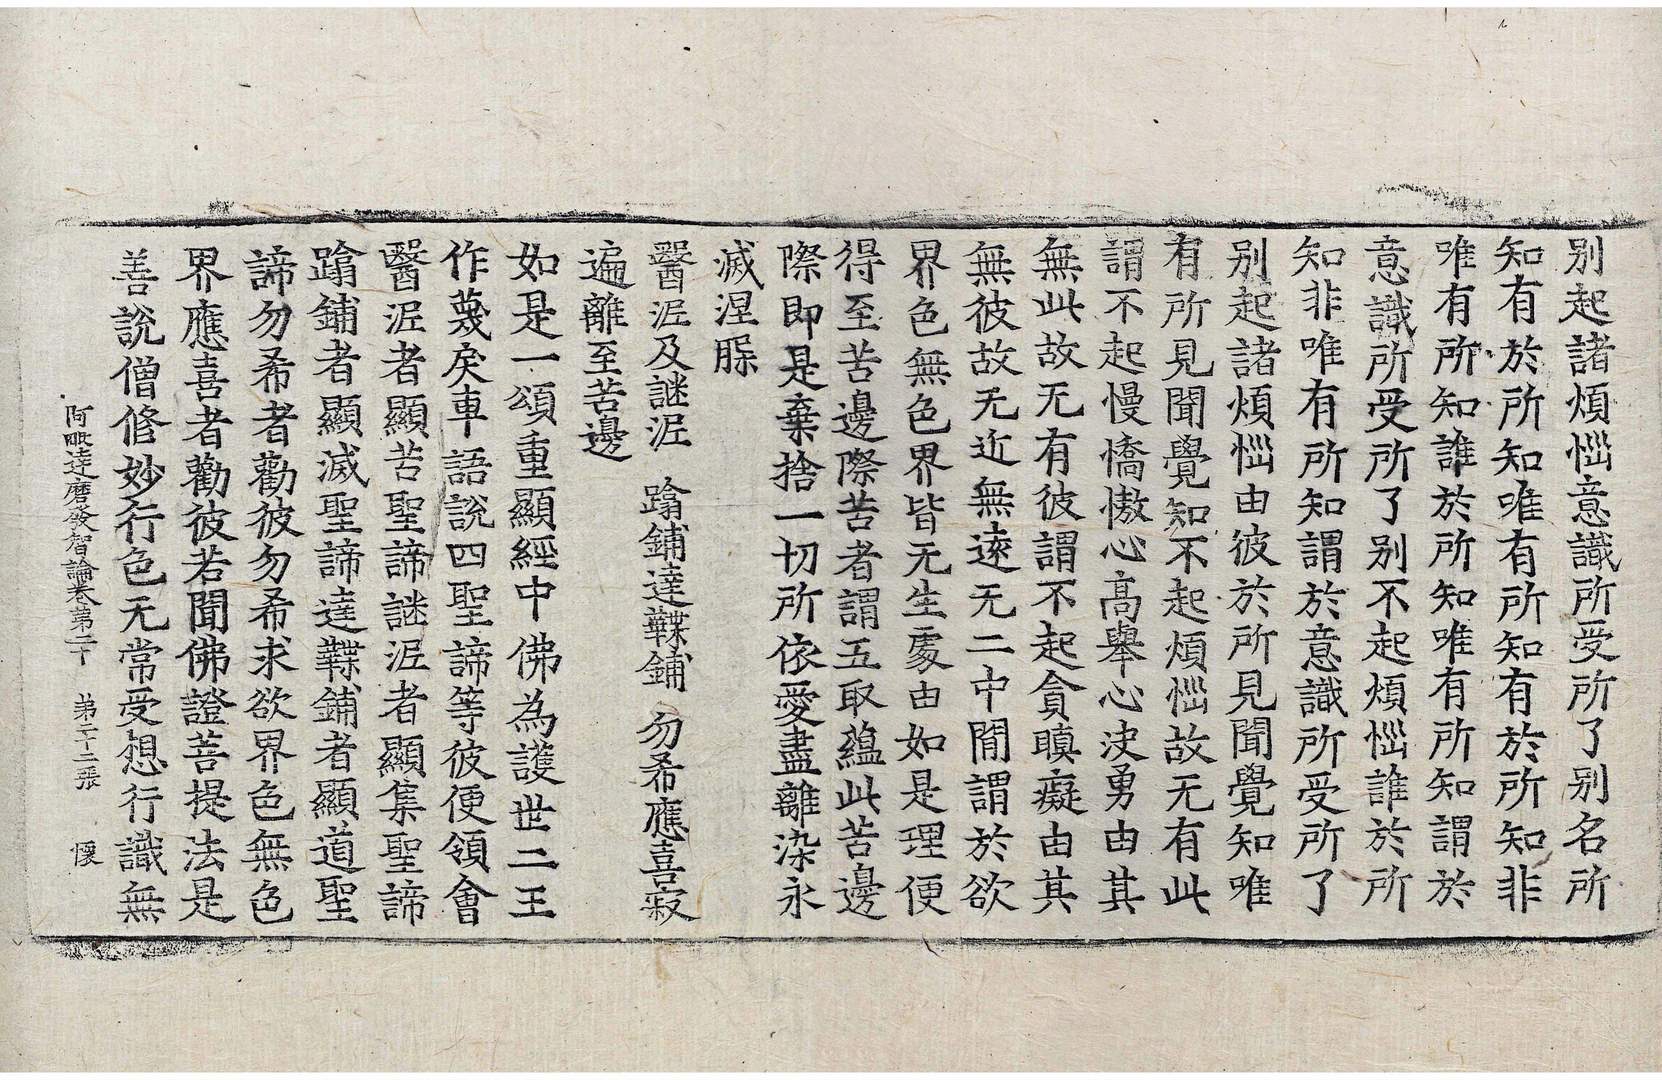 别起諸煩惱意識所受所了别名所
知有於所知唯有所知有於所知非
唯有所知誰於所知唯有所知謂於
意識所受所了别不起煩惱誰於所
知非唯有所知謂於意識所受所了
别起諸煩惱由彼於所見聞覺知唯
有所見聞覺知不起煩惱故无有此
謂不起慢憍慠心高舉心決勇由其
無此故无有彼謂不起貪瞋癡由其
無彼故无近無遠无二中閒謂於欲
界色無色界皆无生處由如是理便
得至苦邊際苦者謂五取蘊此苦邊
際即是棄捨一切所依愛盡離染永
滅涅槃
醫泥及謎泥 蹹鋪達鞢鋪 勿希應喜寂
遍離至苦邊
如是一頌重顯經中佛為護世二王
作蔑戾車語說四聖諦等彼便領會
醫泥者顯苦聖諦謎泥者顯集聖諦
蹹鋪者顯滅聖諦達鞢鋪者顯道聖
諦勿希者勸彼勿希求欲界色無色
界應喜者勸彼若聞佛證菩提法是
善說僧修妙行色无常受想行識無
阿毗達磨發智論卷第二十 第二十二張 懷